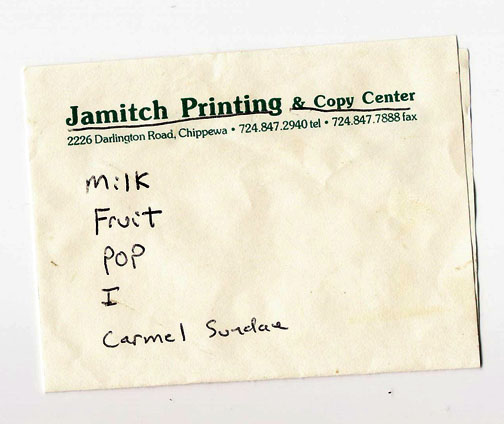 Jamitch Printing & Copy Center
2226 Darlington Road, Chippewa • 724.847.2940 tel • 724.847.7888 fax
Milk
Fruit
POP
I
Carmel Sundae